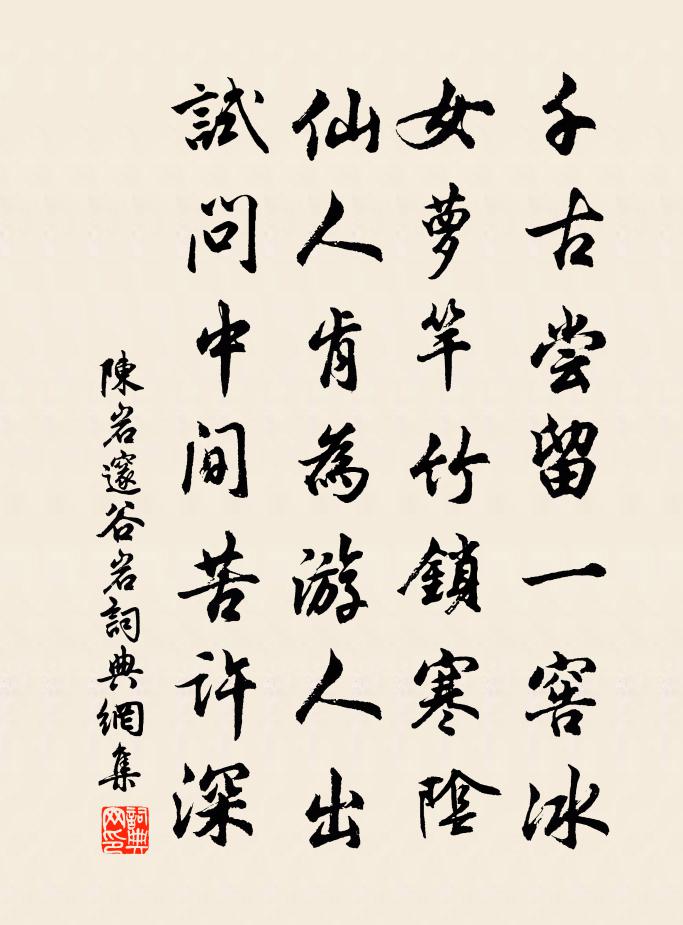 千古尝留一窖冰
女萝竿竹鎖寒陰
仙人肯為游人出
試問中間苦許深
陳岩邃谷岩詞典網集
詞典网印